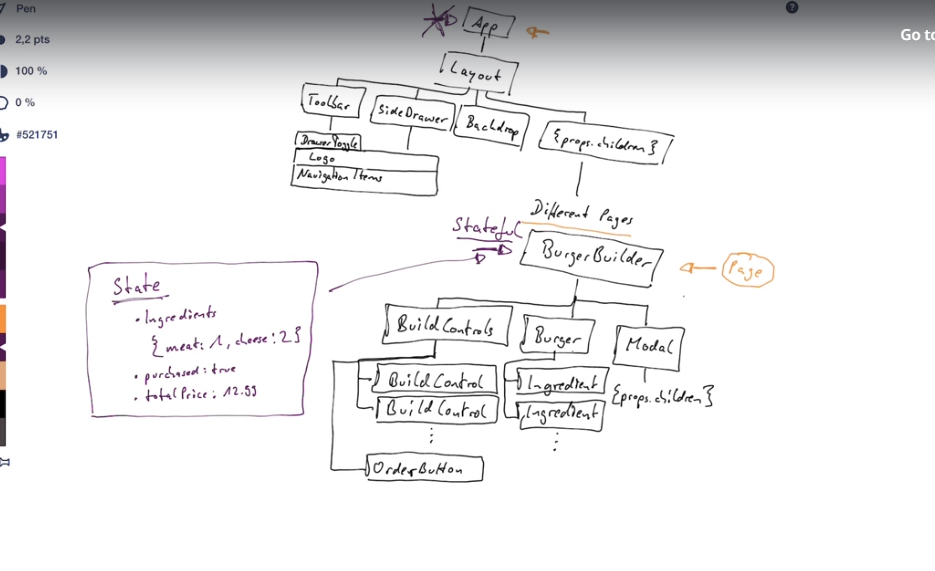 Pen
2,2 pts
100 %
0 %
#521751
?
Go to
App
Layout
Toolbar
SideDrawer
Backdrop
{props.children}
DrawerToggle
Logo
Navigation Items
Different Pages
Stateful
BurgerBuilder
Page
State
• Ingredients
{meat: 1, cheese: 2}
• purchased: true
• totalPrice: 12.99
BuildControls
Burger
Modal
BuildControl
BuildControl
⋮
OrderButton
Ingredient
Ingredient
⋮
{props.children}